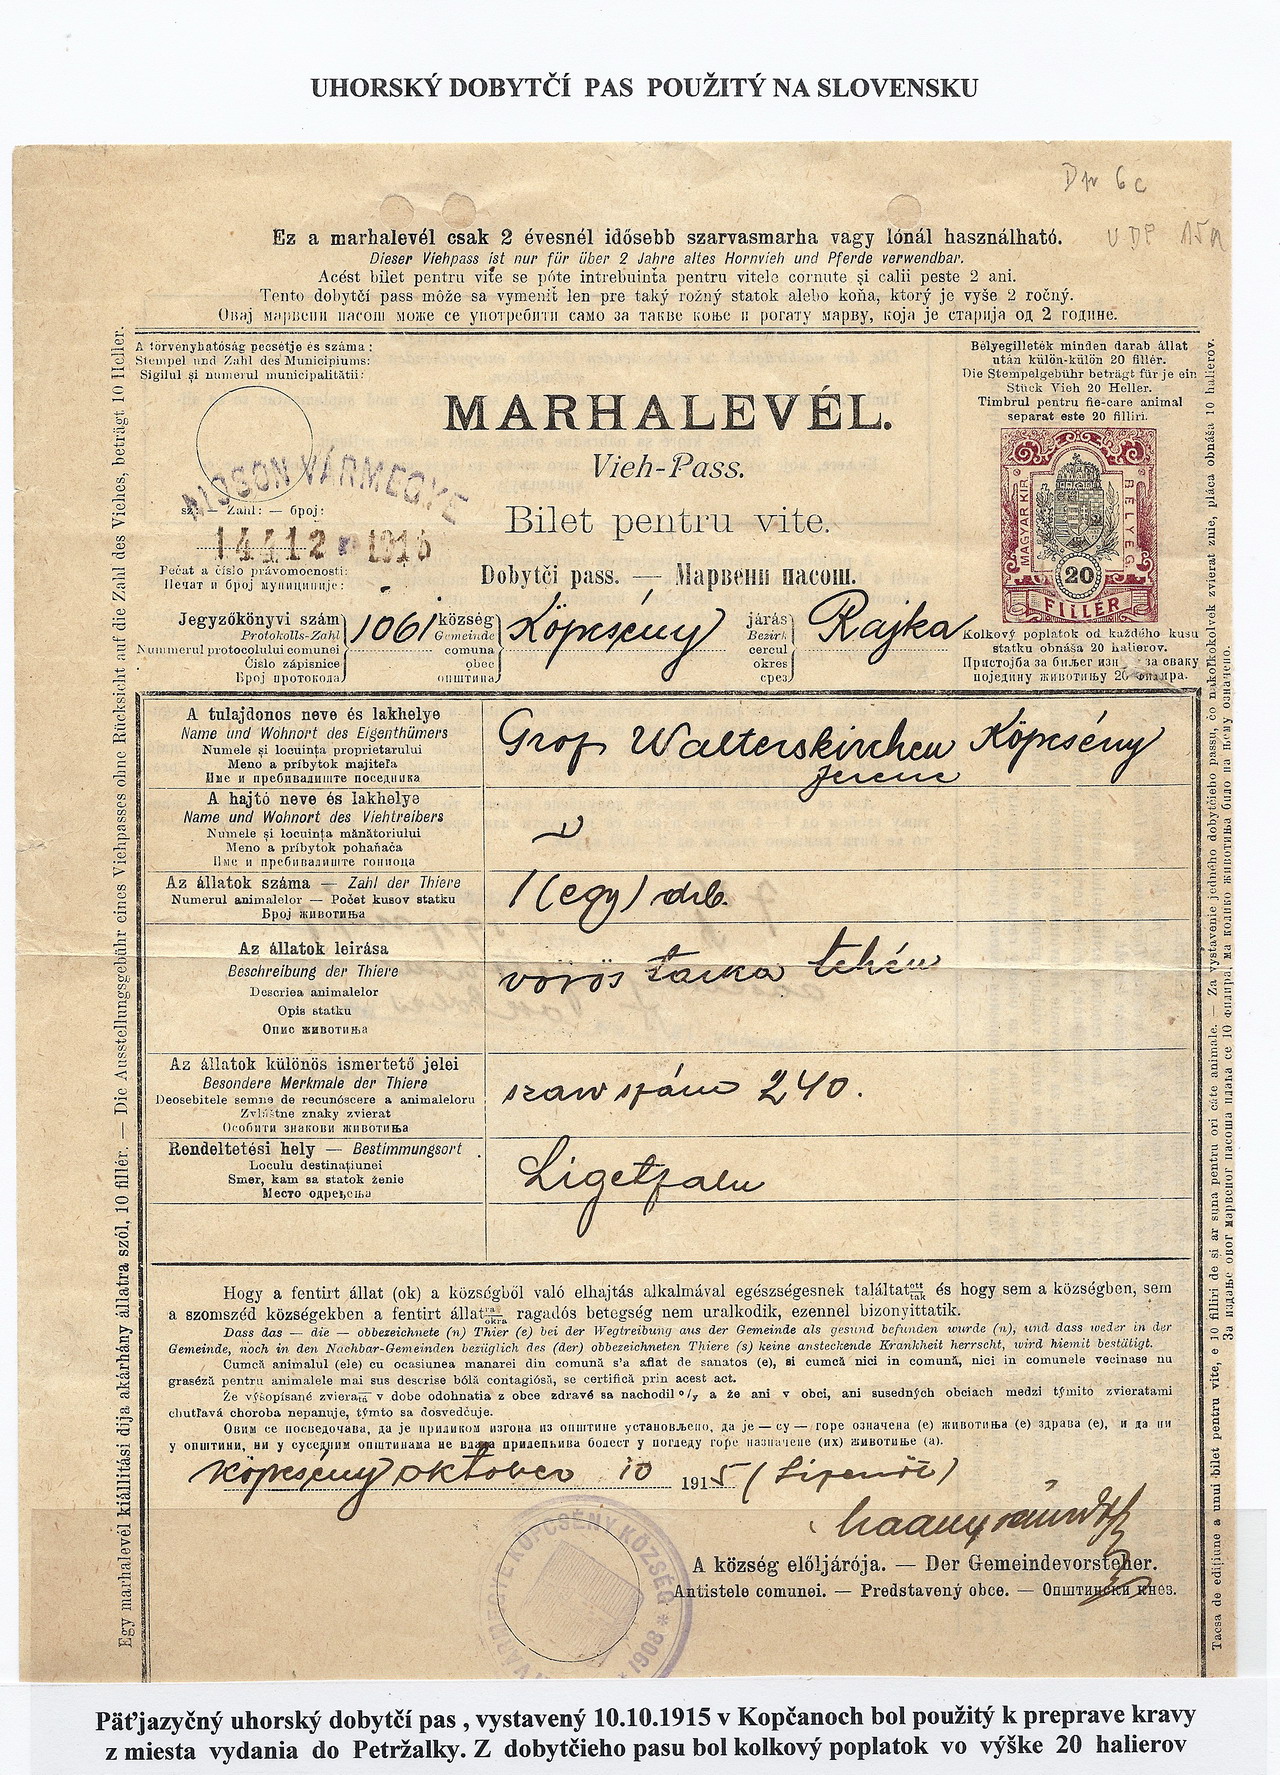 UHORSKÝ DOBYTČÍ PAS POUŽITÝ NA SLOVENSKU
Dpr 6c
UDP 15A
Ez a marhalevél csak 2 évesnél idősebb szarvasmarha vagy lónál használható.
Dieser Viehpass ist nur für über 2 Jahre altes Hornvieh und Pferde verwendbar.
Acést bilet pentru vite se póte intrebuința pentru vitele cornute și calii peste 2 ani.
Tento dobytčí pass môže sa vymeniť len pre taký rožný statok alebo koňa, ktorý je vyše 2 ročný.
Овај марвени пасош може се употребити само за такве коње и рогату марву, која је старија од 2 године.
A törvényhatóság pecsétje és száma:
Stempel und Zahl des Municipiums:
Sigilul și numerul municipalitătii:
MOSON VÁRMEGYE
sz: — Zahl: — број:
14412 1915
Pečat a číslo právomocnosti:
Печат и број муниципије:
MARHALEVÉL.
Vieh-Pass.
Bilet pentru vite.
Dobytči pass. — Марвени пасош.
Bélyegilleték minden darab állat
után külön-külön 20 fillér.
Die Stempelgebühr beträgt für je ein
Stück Vieh 20 Heller.
Timbrul pentru fie-care animal
separat este 20 filliri.
MAGYAR KIR. BÉLYEG
20
FILLÉR
Kolkový poplatok od každého kusu
statku obnáša 20 halierov.
Пристојба за биљег изн за сваку
поједину животињу 20 филира.
Jegyzőkönyvi szám
Protokolls-Zahl
Nummerul protocolului comunei
Čislo zápisnice
Број протокола
1061
község
Gemeinde
comuna
obec
општина
Köpcsény
járás
Bezirk
cercul
okres
срез
Rajka
A tulajdonos neve és lakhelye
Name und Wohnort des Eigenthümers
Numele și locuința proprietarului
Meno a príbytok majiteľa
Име и пребивалиште поседника
Grof Walterskirchen Köpcsény
Ferenc
A hajtó neve és lakhelye
Name und Wohnort des Viehtreibers
Numele și locuința mănătoriului
Meno a príbytok pohaňača
Име и пребивалиште гониоца
Az állatok száma — Zahl der Thiere
Numerul animalelor — Počet kusov statku
Број животиња
1 (egy) drb.
Az állatok leirása
Beschreibung der Thiere
Descriea animalelor
Opis statku
Опис животиња
vörös tarka tehén
Az állatok különös ismertető jelei
Besondere Merkmale der Thiere
Deosebitele semne de recunóscere a animaleloru
Zvláštne znaky zvierat
Особити знакови животиња
szarv szám 240.
Rendeltetési hely — Bestimmungsort
Loculu destinațiunei
Smer, kam sa statok ženie
Место одређења
Ligetfalu
Hogy a fentirt állat (ok) a községből való elhajtás alkalmával egészségesnek találtatott/tak és hogy sem a községben, sem
a szomszéd községekben a fentirt állatra/okra ragadós betegség nem uralkodik, ezennel bizonyittatik.
Dass das — die — obbezeichnete (n) Thier (e) bei der Wegtreibung aus der Gemeinde als gesund befunden wurde (n), und dass weder in der
Gemeinde, noch in den Nachbar-Gemeinden bezüglich des (der) obbezeichneten Thiere (s) keine ansteckende Krankheit herrscht, wird hiemit bestätigt.
Cumcă animalul (ele) cu ocasiunea manarei din comună s'a aflat de sanatos (e), si cumcă nici in comună, nici in comunele vecinase nu
graséză pentru animalele mai sus descrise bólă contagiósă, se certifică prin acest act.
Že výšopísané zviera/tá v dobe odohnatia z obce zdravé sa nachodil o/y a že ani v obci, ani susedných obciach medzi týmito zvieratami
chutľavá choroba nepanuje, týmto sa dosvedčuje.
Овим се посведочава, да је приликом изгона из општине установљено, да је — су — горе означена (е) животиња (е) здрава (е), и да ни
у општини, ни у суседним општинама не влада прилепљива болест у погледу горе назначене (их) животиње (а).
Köpcsény október 10 1915
A község előljárója. — Der Gemeindevorsteher.
Antistele comunei. — Predstavený obce. — Општински кнез.
KÖPCSÉNY KÖZSÉG * 1908
Egy marhalevél kiállitási dija akárhány állatra szól, 10 fillér. — Die Ausstellungsgebühr eines Viehpasses ohne Rücksicht auf die Zahl des Viehes, beträgt 10 Heller.
Tacsa de edițiune a unui bilet pentru vite, e 10 filliri de si ar suna pentru ori câte animale. — Za vystavenie jedného dobytčieho passu, čo nakoľkokoľvek zvierat znie, pláca obnáša 10 halierov.
За издање овог марвеног пасоша плаћа се 10 филира, ма колико животиња било на њему означено.
Päťjazyčný uhorský dobytčí pas , vystavený 10.10.1915 v Kopčanoch bol použitý k preprave kravy
z miesta vydania do Petržalky. Z dobytčieho pasu bol kolkový poplatok vo výške 20 halierov